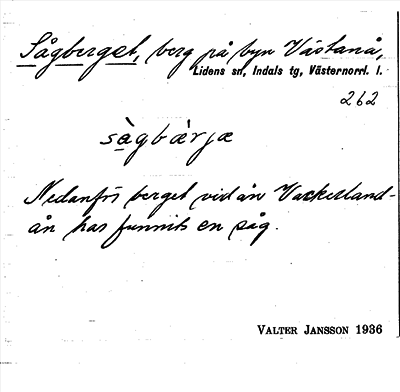 Sågberget, berg på byn Västanå,
Lidens sn, Indals tg, Västernorrl. l.
262
sàgbærjæ
Nedanför berget vid ån Vackerland-
ån har funnits en såg.
VALTER JANSSON 1936